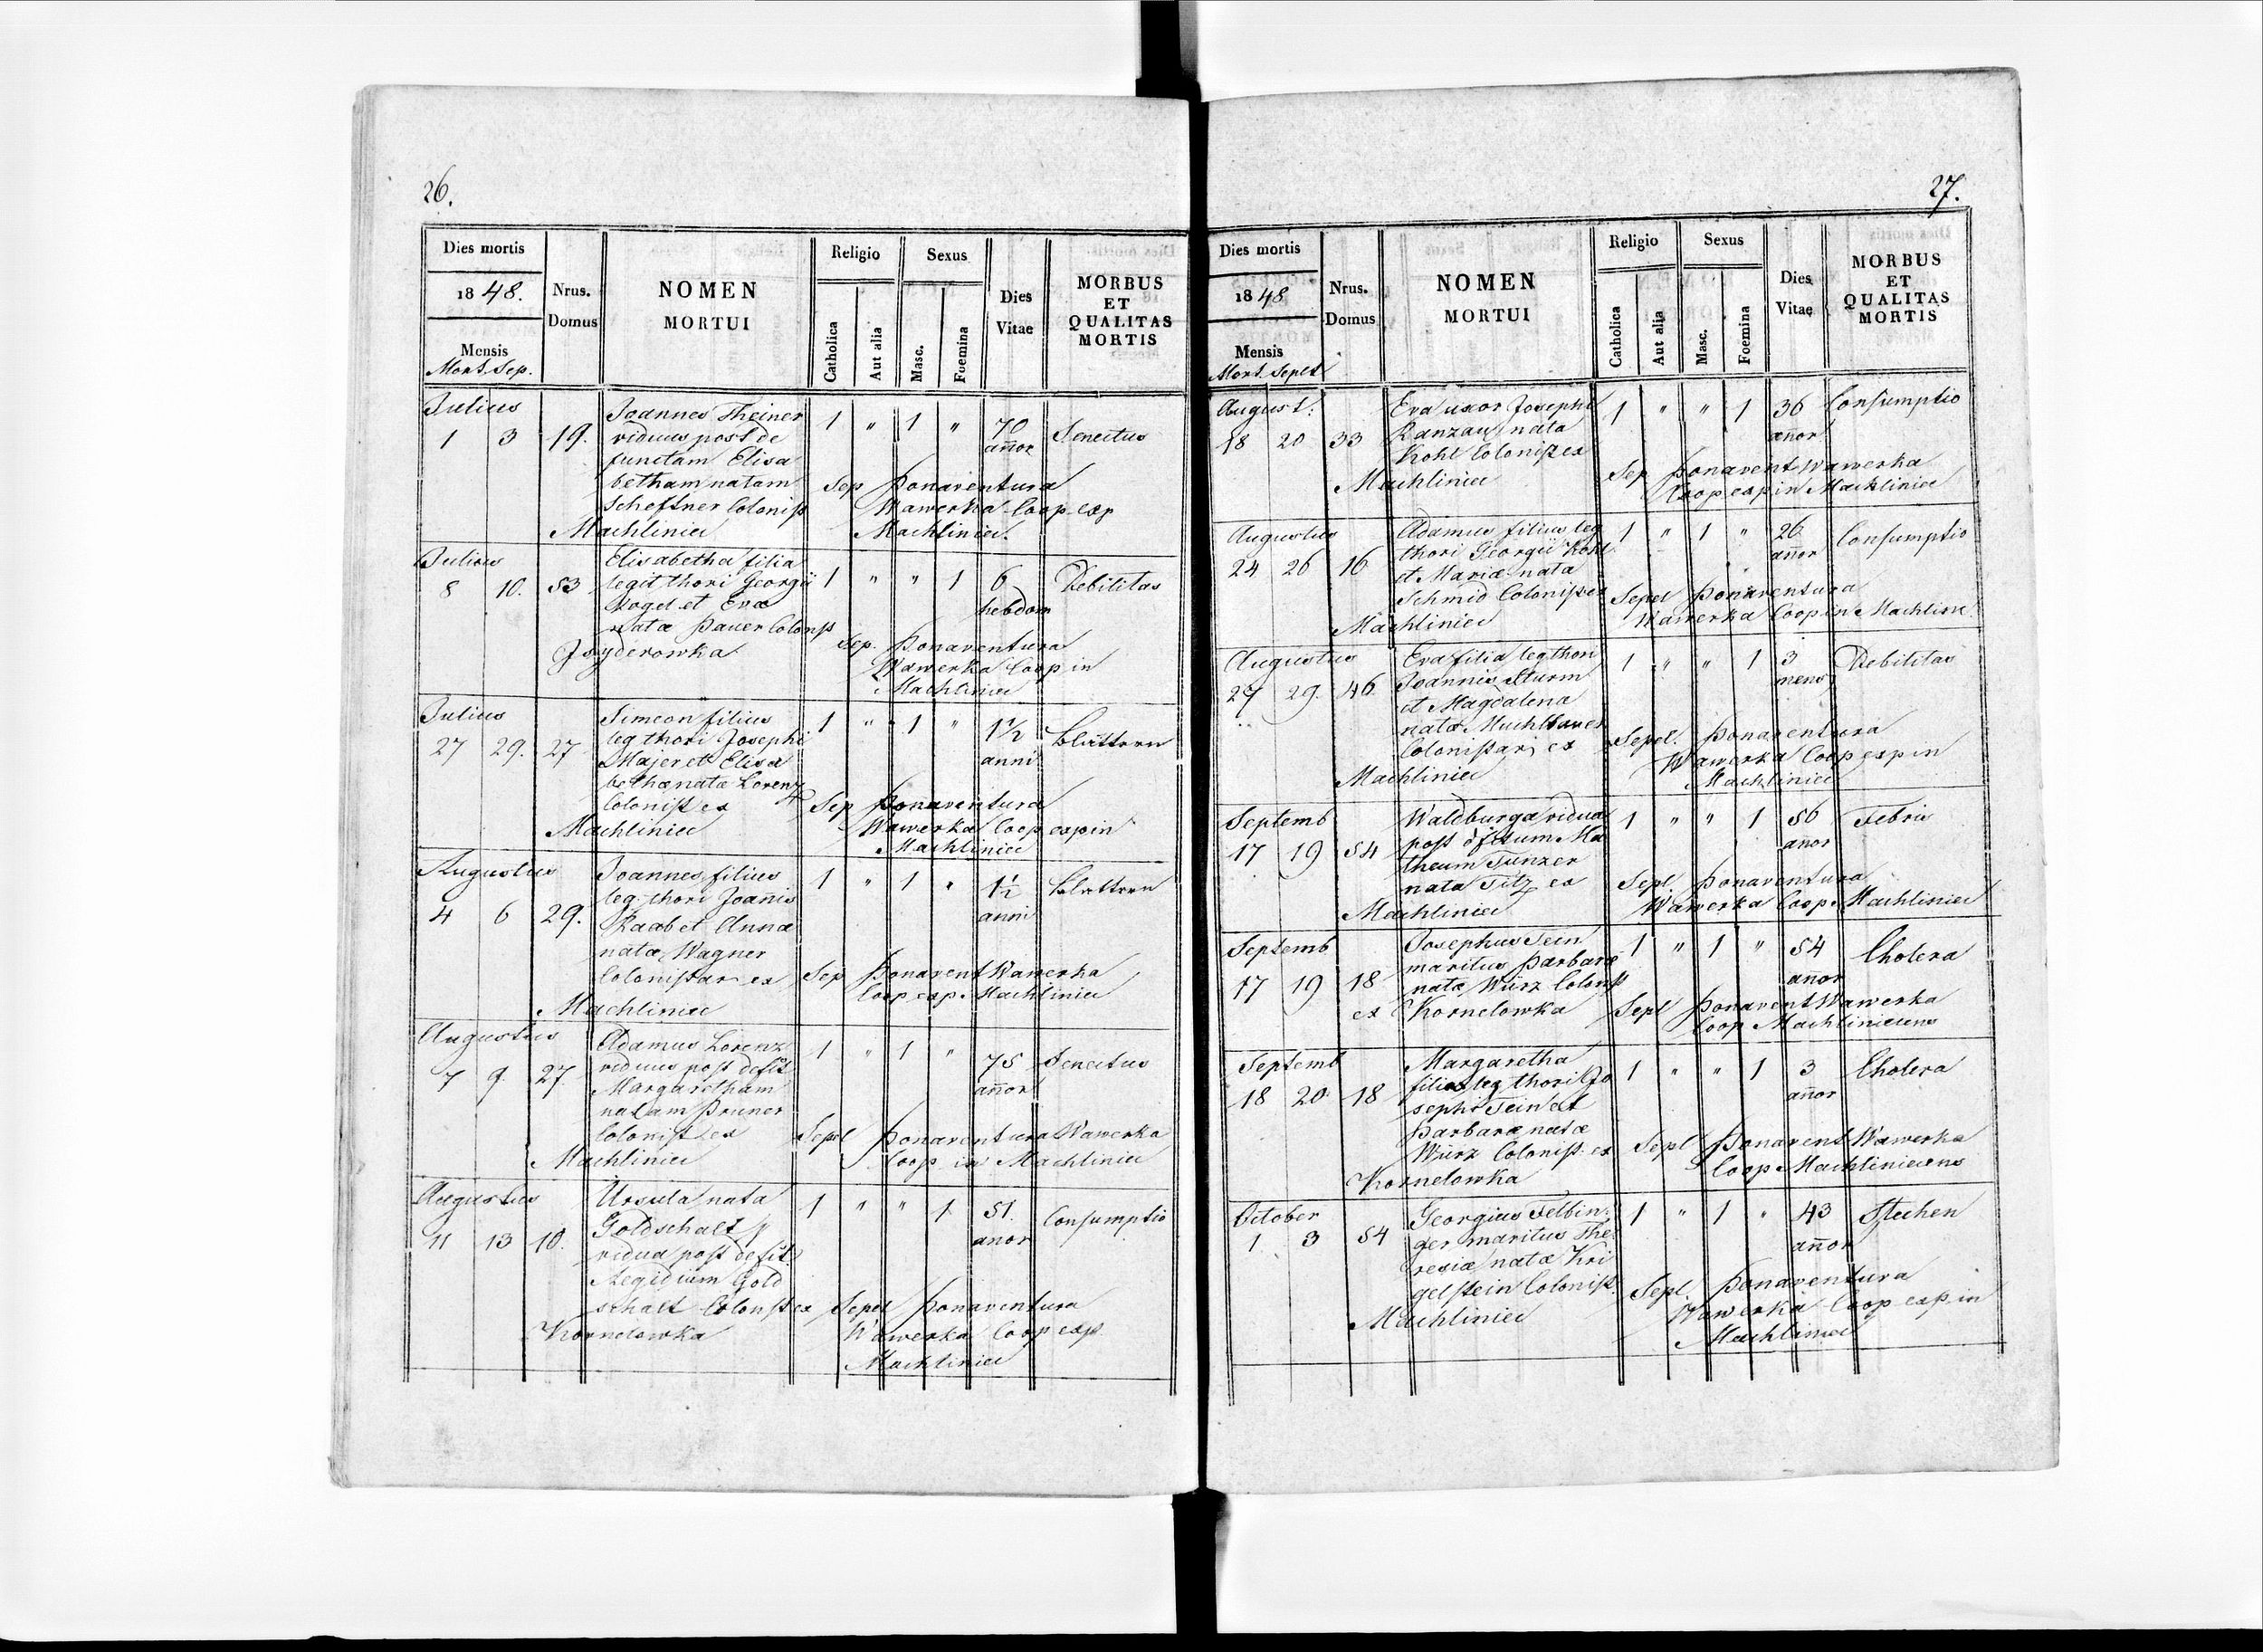 26.
Dies mortis
1848.
Mensis
Mort. Sep.
Nrus. Domus
NOMEN
MORTUI
Religio
Catholica
Aut alia
Sexus
Masc.
Foemina
Dies
Vitae
MORBUS
ET
QUALITAS
MORTIS
Julius
1 3 19.
Joannes Theiner
viduus post de
functam Elisa
betham natam
Scheftner Colonist
Machliniec
1 " 1 " 70
annor
Senectus
Sep Bonaventura
Wawerka Coop exp
Machliniec
Julius
8 10. 53
Elisabetha filia
legit thori Georgii
Vogel et Eva
nata Bauer Colonist
Isyderowka
1 " " 1 6
hebdom
Debilitas
Sep. Bonaventura
Wawerka Coop in
Machliniec
Julius
27 29. 27
Simeon filius
leg thori Josephi
Majer et Elisa
betha nata Lorenz
Colonist ex
Machliniec
1 " 1 " 1½
anni
Blattern
Sep Bonaventura
Wawerka Coop exp in
Machliniec
Augustus
4 6 29.
Joannes filius
leg. thori Joannis
Raab et Anna
nata Wagner
Colonistar ex
Machliniec
1 " 1 " 1½
anni
Blattern
Sep Bonavent Wawerka
Coop exp. Machliniec
Augustus
7 9 27
Adamus Lorenz
viduus post defct
Margaretham
natam Bruner
Colonist ex
Machliniec
1 " 1 " 75
annor
Senectus
Sepel Bonaventura Wawerka
Coop in Machliniec
Augustus
11 13 10.
Ursula nata
Goldschalt
vidua post defct
Aegidium Gold
schalt Colonist ex
Kornelowka
1 " " 1 51
anor
Consumptio
Sepel Bonaventura
Wawerka Coop exp
Machliniec
27.
Dies mortis
1848
Mensis
Mort. Sepelt
Nrus. Domus
NOMEN
MORTUI
Religio
Catholica
Aut alia
Sexus
Masc.
Foemina
Dies
Vitae
MORBUS
ET
QUALITAS
MORTIS
August:
18 20 33
Eva uxor Josephi
Ranzau nata
Kohl Colonist ex
Machliniec
1 " " 1 36
annor
Consumptio
Sep Bonavent Wawerka
Coop exp in Machliniec
Augustus
24 26 16
Adamus filius leg
thori Georgii Kohl
et Maria nata
Schmid Colonist ex
Machliniec
1 " 1 " 26
annor
Consumptio
Sepel Bonaventura
Wawerka Coop in Machlinie
Augustus
27 29. 46
Eva filia leg thori
Joannis Sturm
et Magdalena
nata Muchlbauer
Colonistar ex
Machliniec
1 " " 1 3
mens
Debilitas
Sepel. Bonaventura
Wawerka Coop exp in
Machliniec
Septemb
17 19 54
Waldburga vidua
post dfctum Ma
theum Tunzer
nata Titz ex
Machliniec
1 " " 1 56
annor
Febris
Sepl. Bonaventura
Wawerka Coop. Machliniec
Septemb
17 19 18
Josephus Tein
maritus Barbara
nata Würz Colonist
ex Kornelowka
1 " 1 " 54
annor
Cholera
Sepl Bonavent Wawerka
Coop Machliniecens
Septemb
18 20 18
Margaretha
filia leg thori Jo
sephi Tein et
Barbara nata
Würz Colonist. ex
Kornelowka
1 " " 1 3
annor
Cholera
Sepl Bonavent Wawerka
Coop Machliniecens
October
1 3 54
Georgius Felbin
ger maritus The
resia nata Kri
gelstein Colonist.
Machliniec
1 " 1 " 43
annor
Stechen
Sepl. Bonaventura
Wawerka Coop exp. in
Machliniec